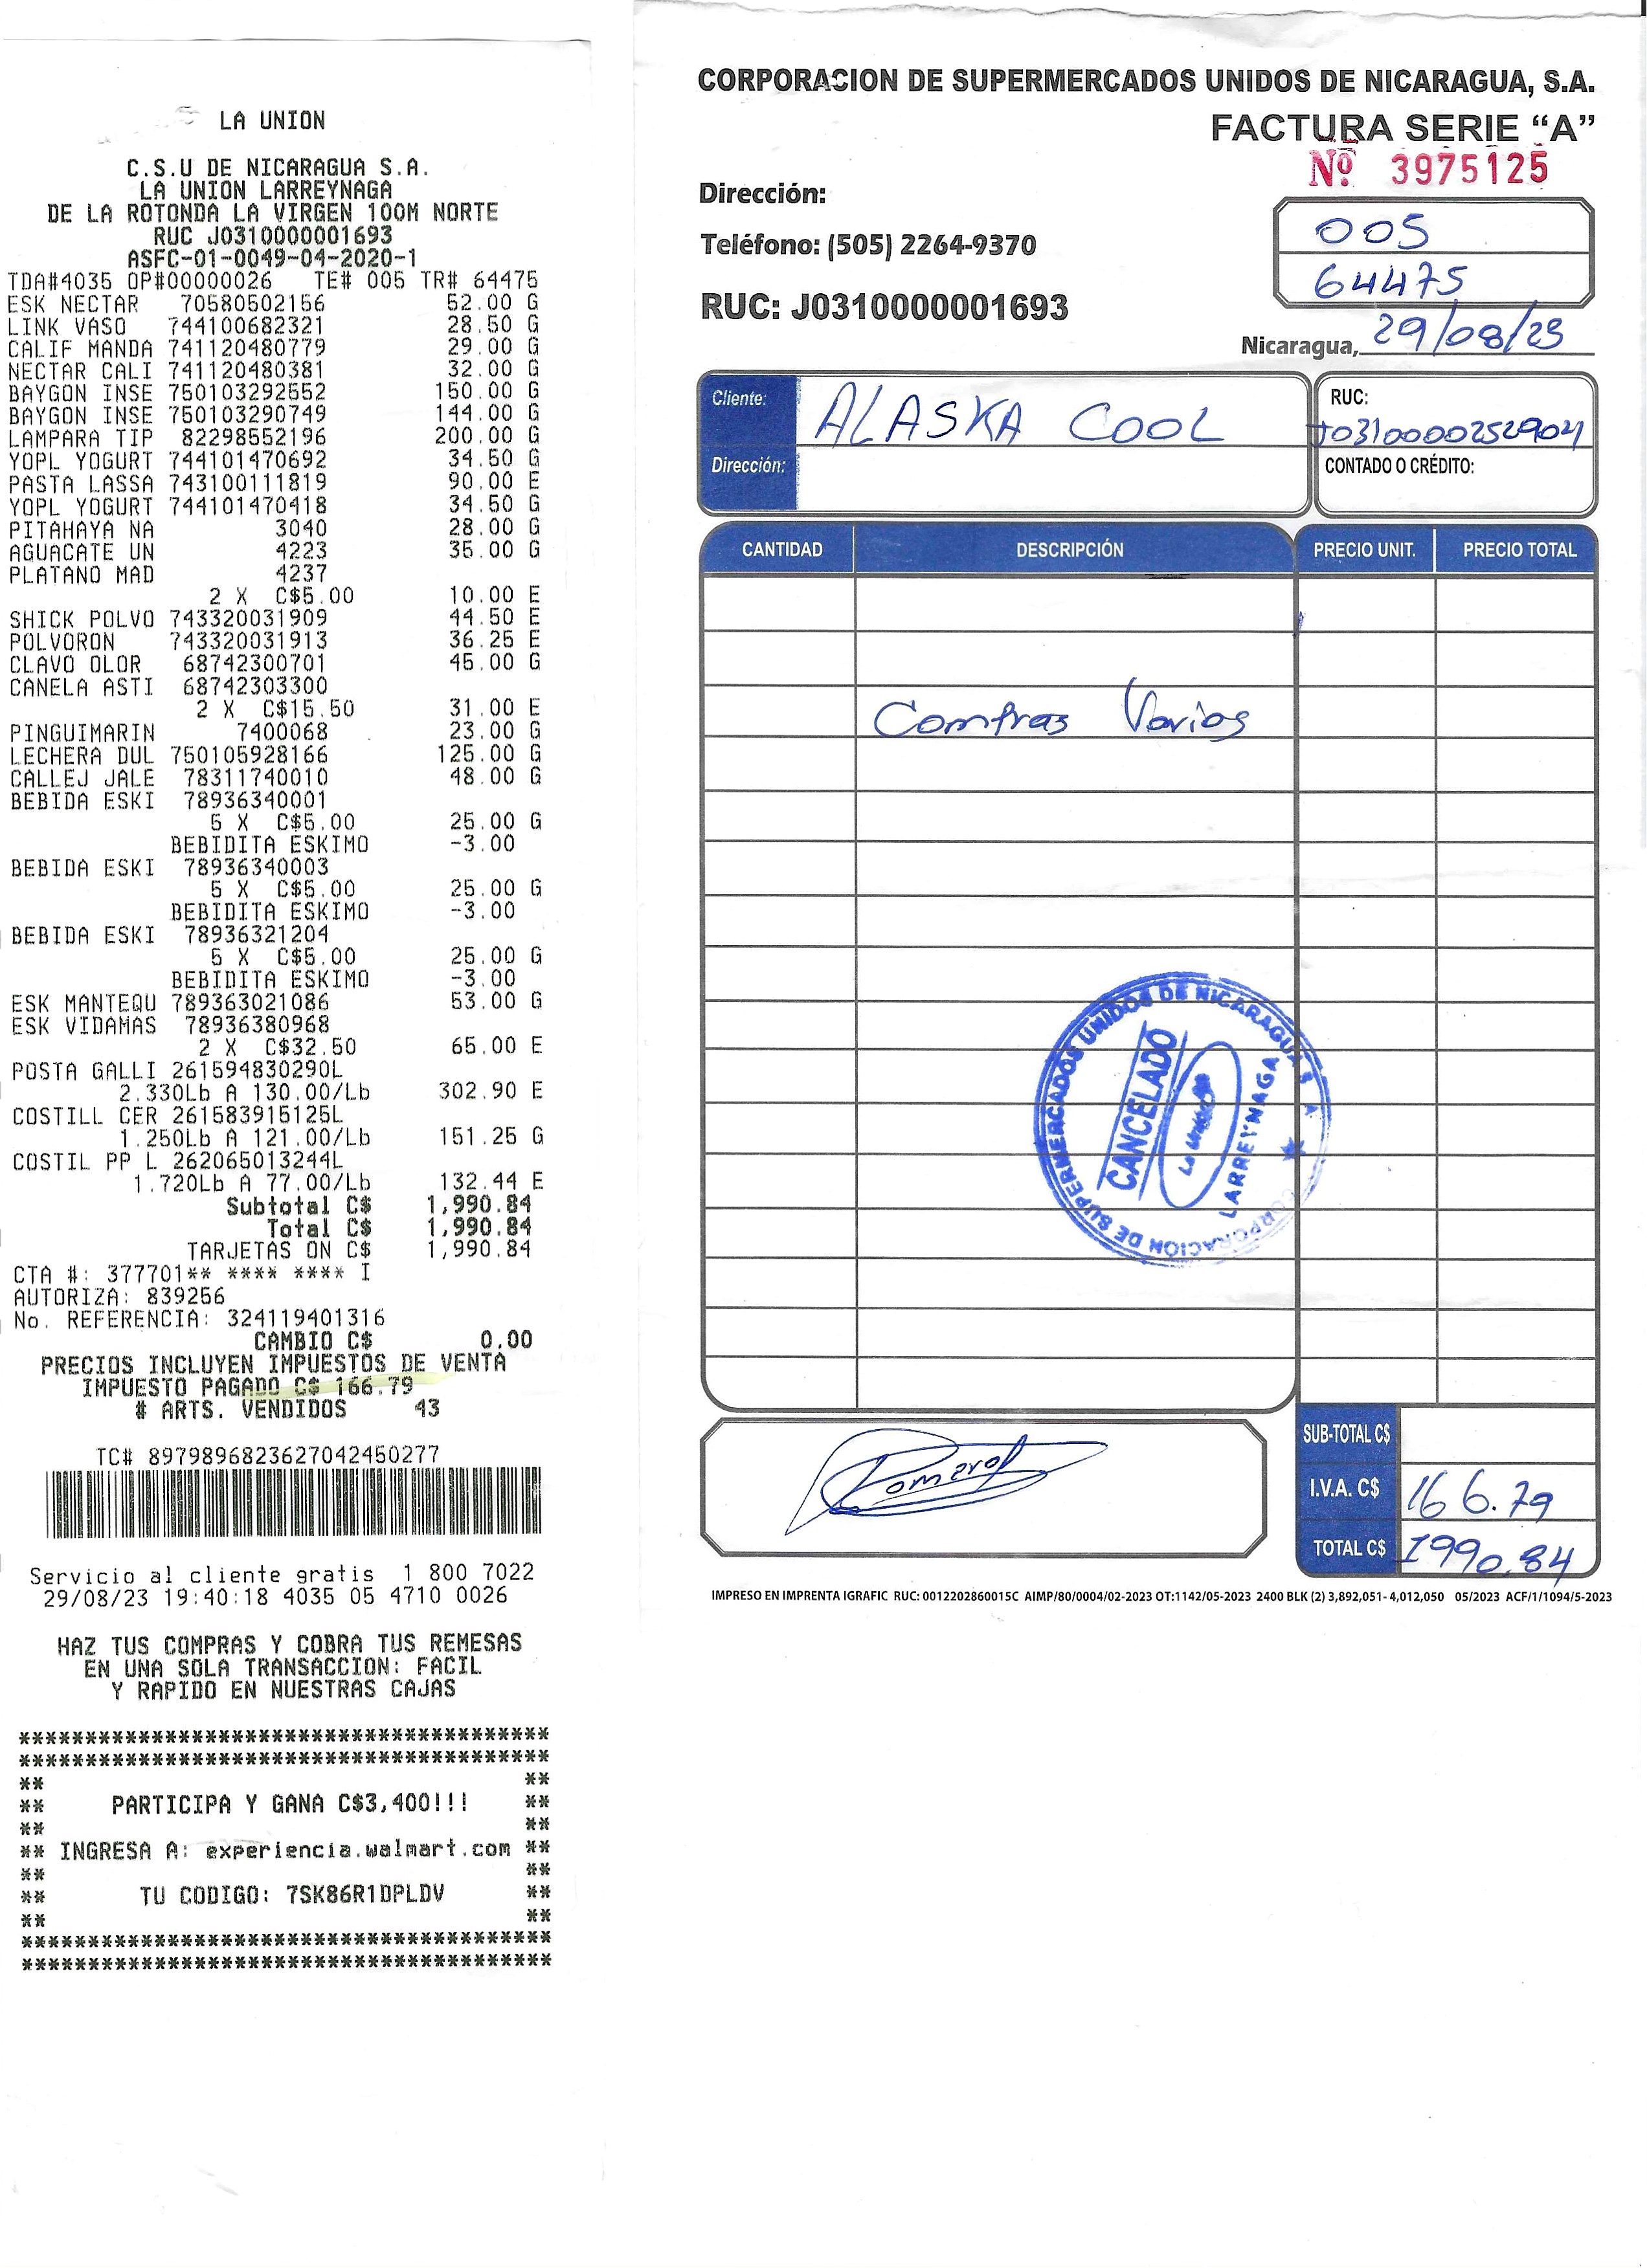 LA UNION
C.S.U DE NICARAGUA S.A.
LA UNION LARREYNAGA
DE LA ROTONDA LA VIRGEN 100M NORTE
RUC J0310000001693
ASFC-01-0049-04-2020-1
TDA#4035 OP#00000026 TE# 005 TR# 64475
ESK NECTAR 70580502156 52.00 G
LINK VASO 744100682321 28.50 G
CALIF MANDA 741120480779 29.00 G
NECTAR CALI 741120480381 32.00 G
BAYGON INSE 750103292552 150.00 G
BAYGON INSE 750103290749 144.00 G
LAMPARA TIP 82298552196 200.00 G
YOPL YOGURT 744101470692 34.50 G
PASTA LASSA 743100111819 90.00 E
YOPL YOGURT 744101470418 34.50 G
PITAHAYA NA 3040 28.00 G
AGUACATE UN 4223 35.00 G
PLATANO MAD 4237
2 X C$5.00 10.00 E
SHICK POLVO 743320031909 44.50 E
POLVORON 743320031913 36.25 E
CLAVO OLOR 68742300701 45.00 G
CANELA ASTI 68742303300
2 X C$15.50 31.00 E
PINGUIMARIN 7400068 23.00 G
LECHERA DUL 750105928166 125.00 G
CALLEJ JALE 78311740010 48.00 G
BEBIDA ESKI 78936340001
5 X C$5.00 25.00 G
BEBIDITA ESKIMO -3.00
BEBIDA ESKI 78936340003
5 X C$5.00 25.00 G
BEBIDITA ESKIMO -3.00
BEBIDA ESKI 78936321204
5 X C$5.00 25.00 G
BEBIDITA ESKIMO -3.00
ESK MANTEQU 789363021086 53.00 G
ESK VIDAMAS 78936380968
2 X C$32.50 65.00 E
POSTA GALLI 261594830290L
2.330Lb A 130.00/Lb 302.90 E
COSTILL CER 261583915125L
1.250Lb A 121.00/Lb 151.25 G
COSTIL PP L 262065013244L
1.720Lb A 77.00/Lb 132.44 E
Subtotal C$ 1,990.84
Total C$ 1,990.84
TARJETAS ON C$ 1,990.84
CTA #: 377701** **** **** I
AUTORIZA: 839256
No. REFERENCIA: 324119401316
CAMBIO C$ 0.00
PRECIOS INCLUYEN IMPUESTOS DE VENTA
IMPUESTO PAGADO C$ 166.79
# ARTS. VENDIDOS 43
TC# 8979896823627042450277
Servicio al cliente gratis 1 800 7022
29/08/23 19:40:18 4035 05 4710 0026
HAZ TUS COMPRAS Y COBRA TUS REMESAS
EN UNA SOLA TRANSACCION: FACIL
Y RAPIDO EN NUESTRAS CAJAS
****************************************
****************************************
** **
** PARTICIPA Y GANA C$3,400!!! **
** **
** INGRESA A: experiencia.walmart.com **
** **
** TU CODIGO: 7SK86R1DPLDV **
** **
****************************************
****************************************
CORPORACION DE SUPERMERCADOS UNIDOS DE NICARAGUA, S.A.
FACTURA SERIE “A”
Nº 3975125
Dirección:
005
Teléfono: (505) 2264-9370
64475
RUC: J0310000001693
Nicaragua, 29/08/23
Cliente: ALASKA COOL
RUC:
J0310000252904
Dirección:
CONTADO O CRÉDITO:
CANTIDAD DESCRIPCIÓN PRECIO UNIT. PRECIO TOTAL
Compras Varios
CORPORACION DE SUPERMERCADOS UNIDOS DE NICARAGUA S A
CANCELADO
La Union
LARREYNAGA
SUB-TOTAL C$
I.V.A. C$ 166.79
TOTAL C$ 1990.84
IMPRESO EN IMPRENTA IGRAFIC RUC: 0012202860015C AIMP/80/0004/02-2023 OT:1142/05-2023 2400 BLK (2) 3,892,051- 4,012,050 05/2023 ACF/1/1094/5-2023